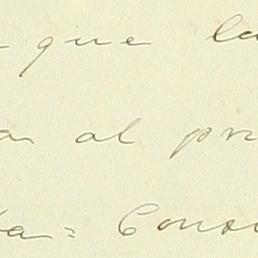 que la
al pr
ta= Cons